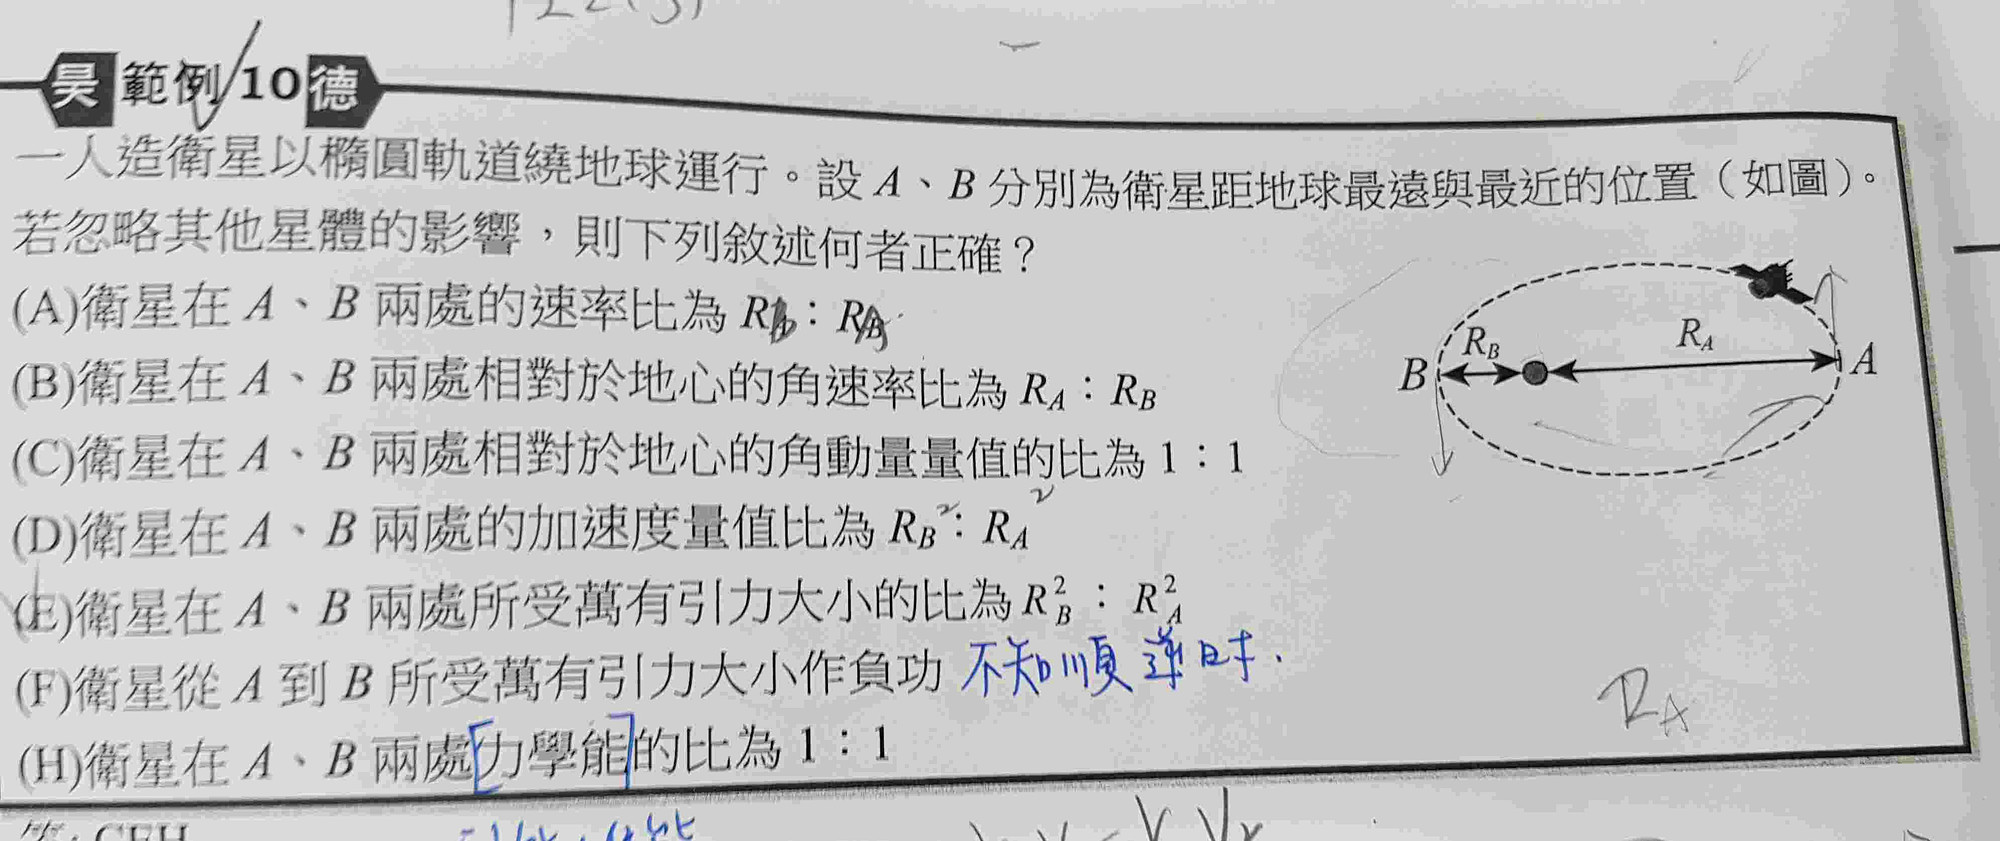 昊範例10德
一人造衛星以橢圓軌道繞地球運行。設 A、B 分別為衛星距地球最遠與最近的位置（如圖）。
若忽略其他星體的影響，則下列敘述何者正確？
(A)衛星在 A、B 兩處的速率比為
(B)衛星在 A、B 兩處相對於地心的角速率比為 R_A：R_B
(C)衛星在 A、B 兩處相對於地心的角動量量值的比為 1：1
(D)衛星在 A、B 兩處的加速度量值比為 R_B²：R_A²
(E)衛星在 A、B 兩處所受萬有引力大小的比為 R_B²：R_A²
(F)衛星從 A 到 B 所受萬有引力大小作負功 不知順逆時.
(H)衛星在 A、B 兩處[力學能]的比為 1：1
B R_B R_A A
R_A
答：CEH